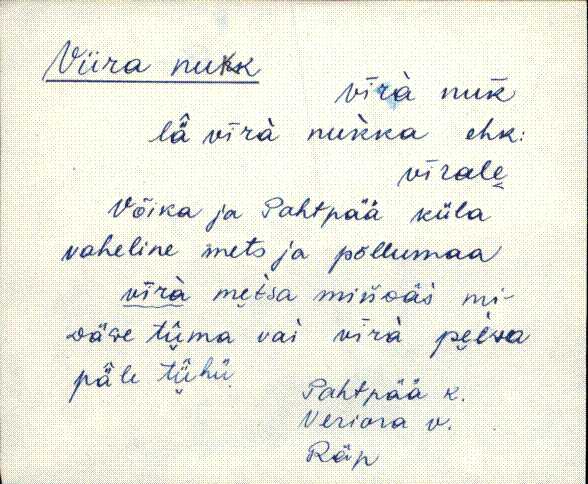 Viira nukk
vīrà nuk̄
lǟ vīrà nuk̀ka ehk:
vīrale̬
Võika ja Pahtpää küla
vaheline mets ja põllumaa
vīrà me̬t́sa
tü̬ma vai vīrà
päle tü̬hü
Pahtpää k.
Veriora v.
Räp